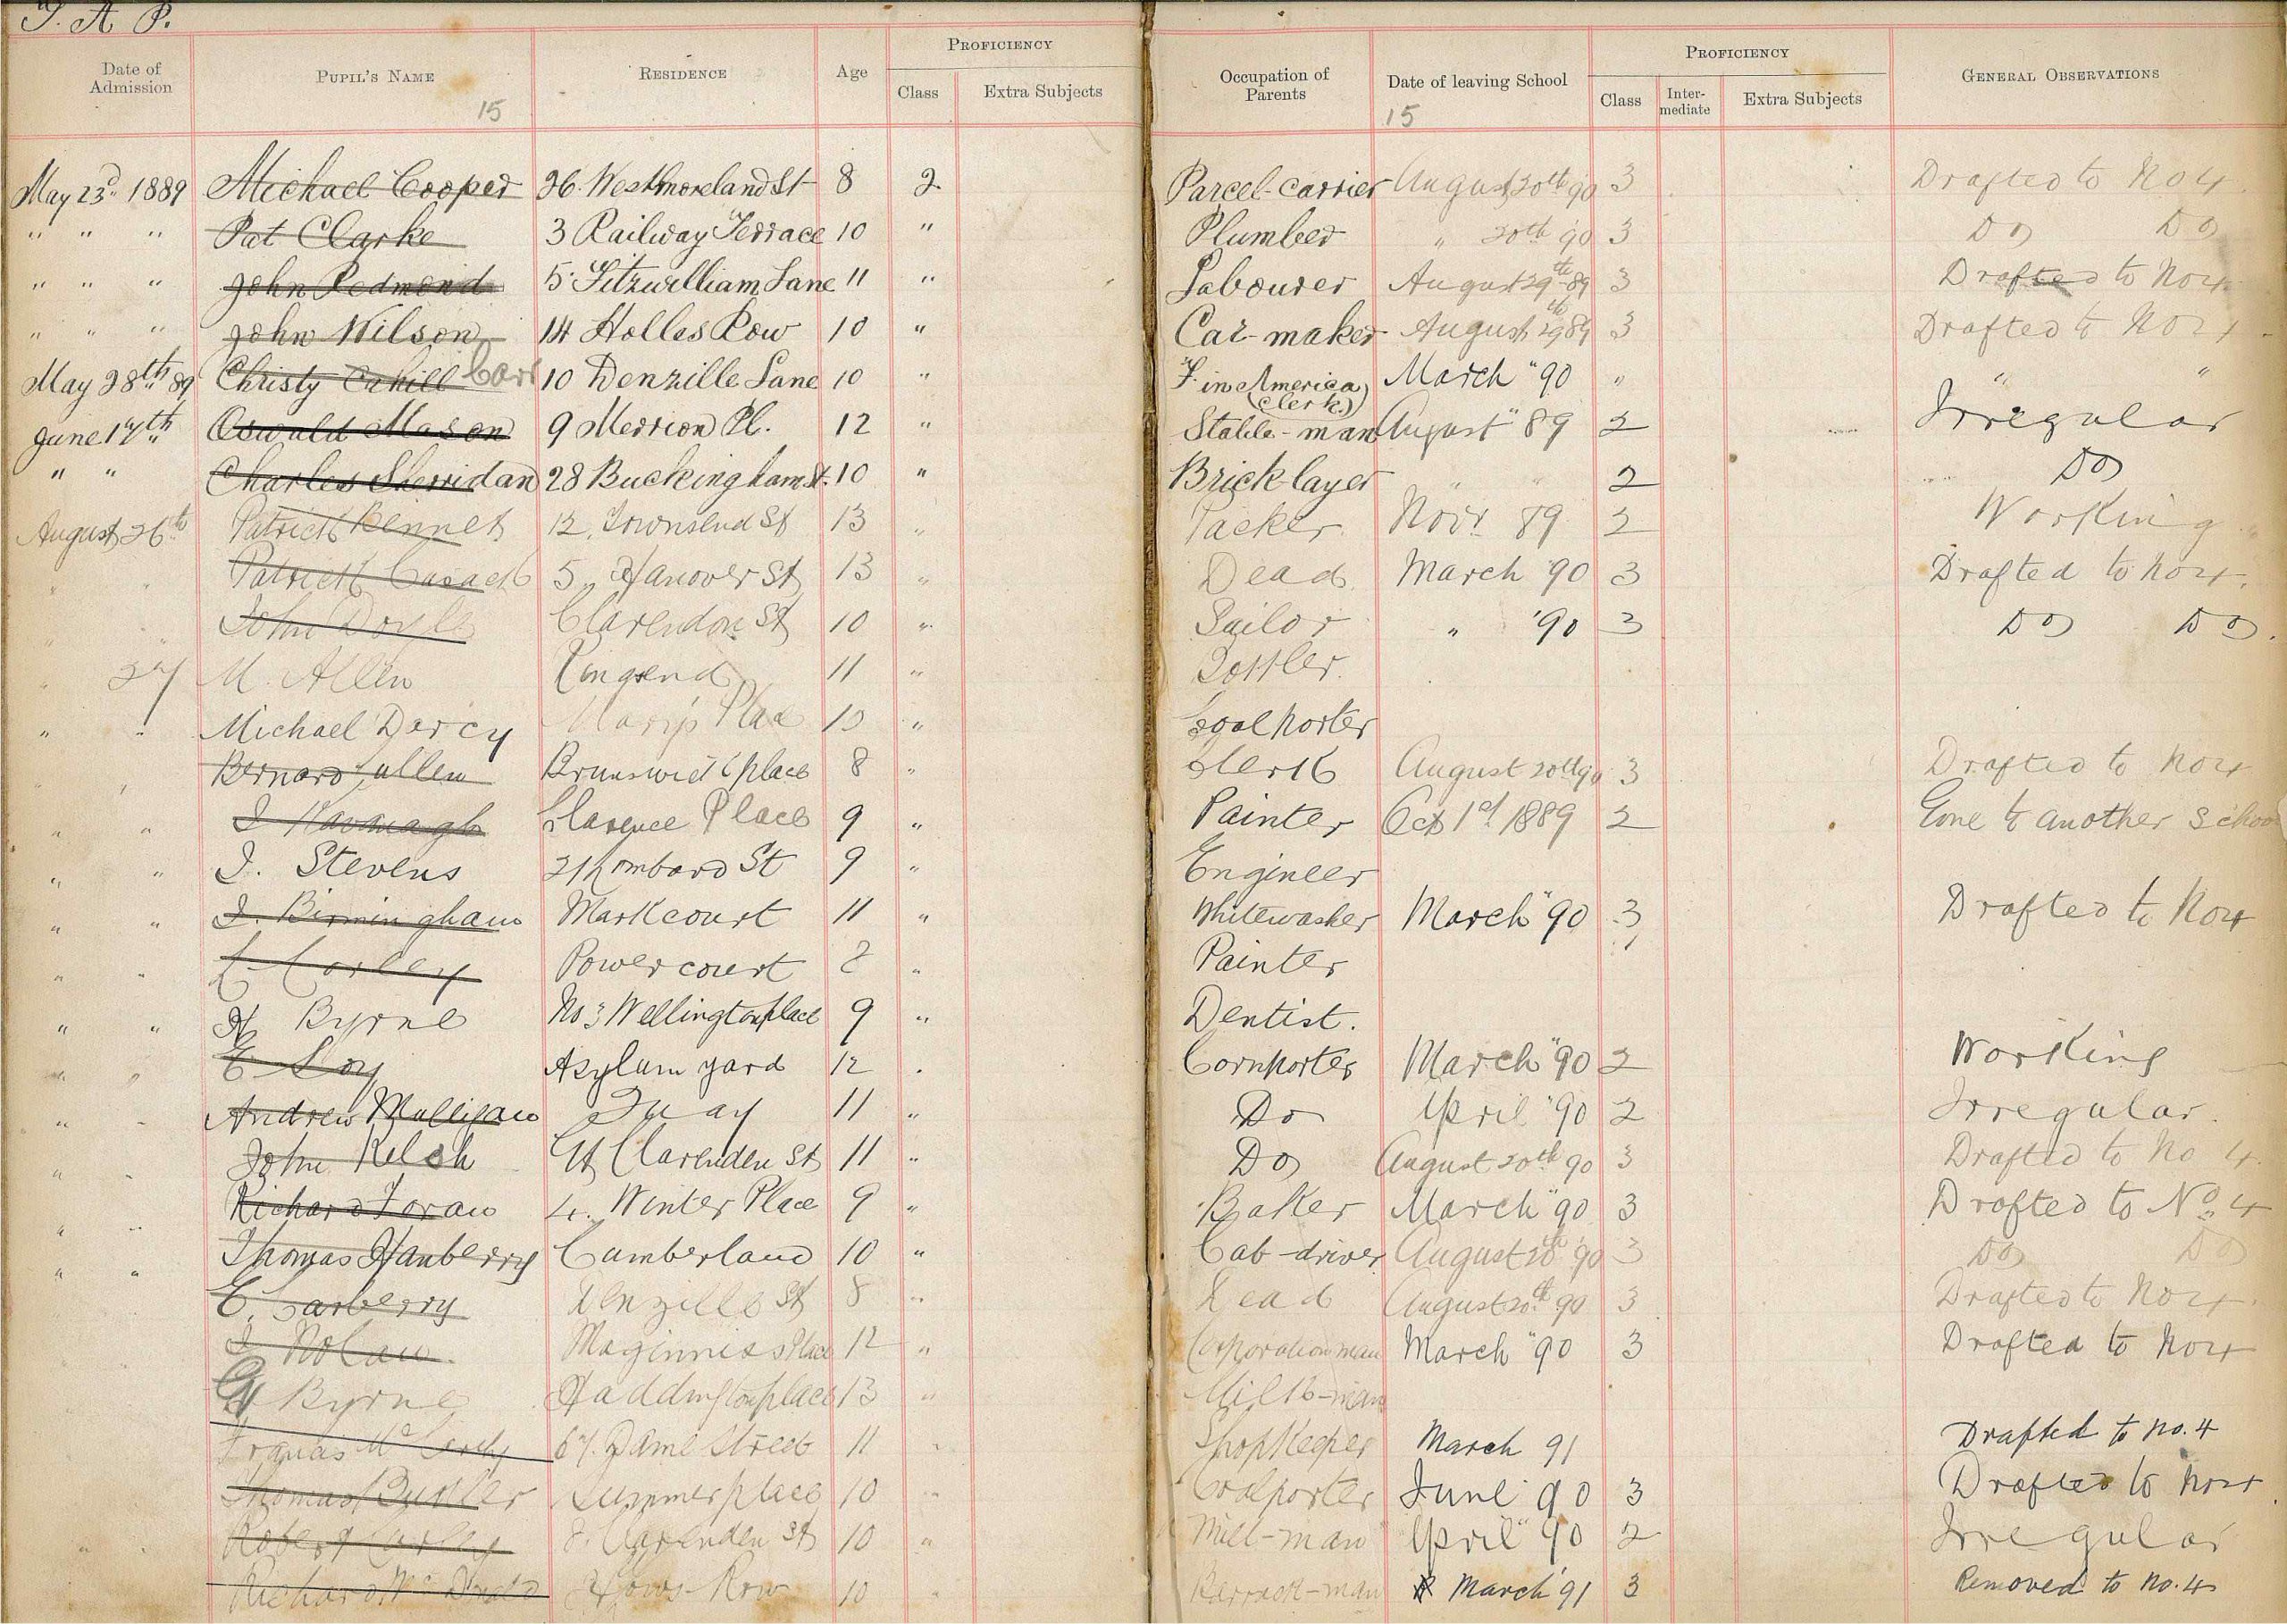 J. A. P.
Date of Admission Pupil's Name Residence Age Proficiency Class Extra Subjects Occupation of Parents Date of leaving School Proficiency Class Inter-mediate Extra Subjects General Observations
15 15
May 23d 1889 Michael Cooper 26. Westmoreland St 8 2 Parcel-carrier August 20th 90 3 Drafted to No 4.
" " " Pat Clarke 3 Railway Terrace 10 " Plumber " 20th 90 3 Do Do
" " " John Redmond 5. Fitzwilliam Lane 11 " Labourer August 29th 89 3 Drafted to No 4
" " " John Wilson 14 Holles Row 10 " Car-maker August 29th 89 3 Drafted to No 4
May 28th 89 Christy Cahill 10 Denzille Lane 10 " F. in America (clerk) March "90 " " "
June 17th Oswald Mason 9 Merrion Pl. 12 " Stable-man August "89 2 Irregular
" " Charles Sherridan 28 Buckingham St. 10 " Brick-layer " " 2 Do
August 26th Patrick Bennet 12, Townsend St 13 " Packer Novr 89 2 Working
" " Patrick Cusack 5, Hanover St 13 " Dead March 90 3 Drafted to No 4.
" " John Doyle Clarendon St 10 " Sailor " '90 3 Do Do.
" 27 M. Allen Ringsend 11 "
" " Michael Darcy Place 10 " Coalporter
" " Bernard Cullen Brunswick place 8 " Clerk August 20th 90 3 Drafted to No 4
" " J Kavanagh Clarence Place 9 " Painter Oct 1st 1889 2 Gone to another school
" " J. Stevens Lombard St 9 " Engineer
" " J. Birmingham Markcourt 11 " Whitewasher March "90 3 Drafted to No 4
" " Corley Powercourt 8 " Painter
" " Byrne No 3 Wellington place 9 " Dentist.
" " E Loy Asylum yard 12 . Cornporter March "90 2 Working
" " Andrew Mulligan Quay 11 " Do April "90 2 Irregular.
" " John Kelch Clarenden St 11 " Do August 20th 90 3 Drafted to No 4.
" " Richard Foran 4. Winter Place 9 " Baker March "90 3 Drafted to No. 4
" " Thomas Hanberry Cumberland 10 " Cab-driver August 20th 90 3 Do Do
C. Carberry Denzille St 8 " Dead August 20th 90 3 Drafted to No 4.
J Nolan Maginniss Place 12 " Corporation man March "90 3 Drafted to No 4
Byrne Haddington place 13 " Milk-man
Francis 67. Dame Street 11 " Shopkeeper March 91 Drafted to No. 4
Thomas Butler Summerplace 10 " Coalporter June 90 3 Drafted to No 4
Robert Corley 8. Clarenden St 10 " April "90 2 Irregular
Richard Row 10 " March '91 3 Removed to No. 4